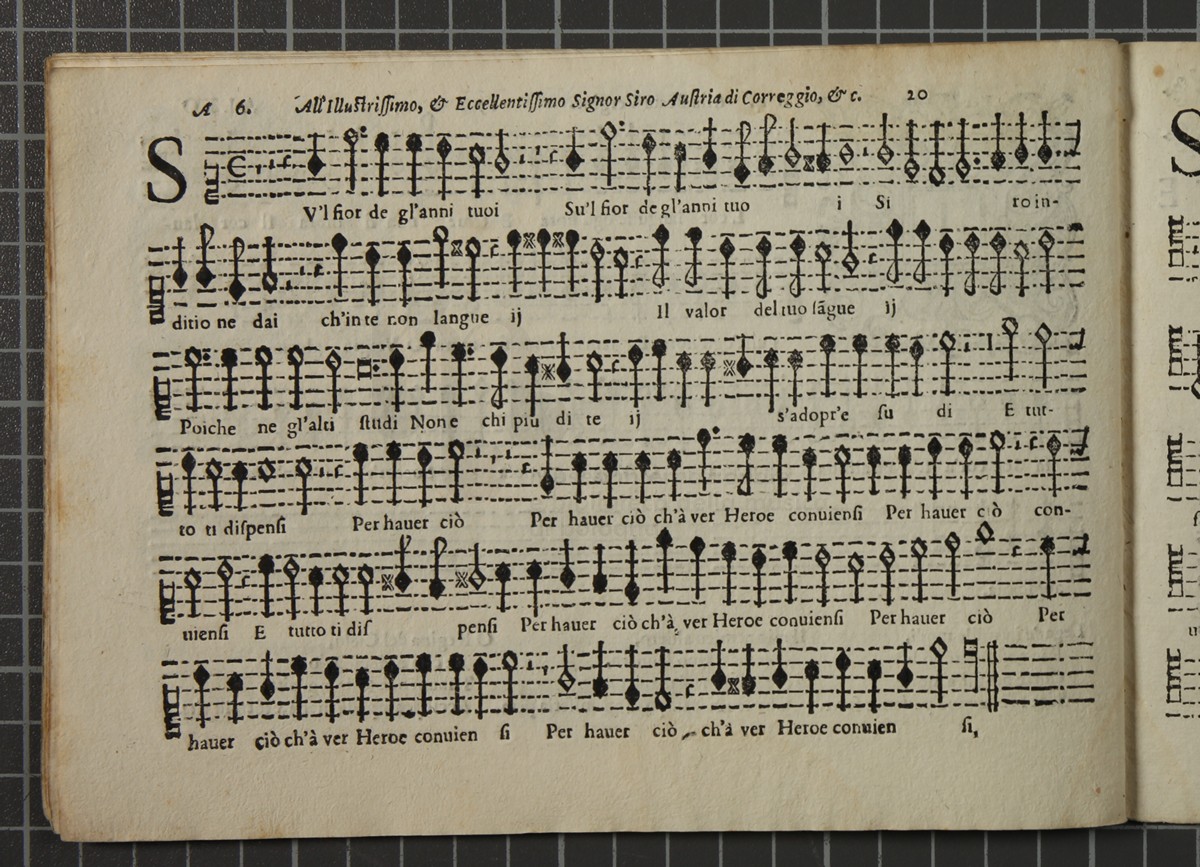 A 6. All'Illustrissimo, & Eccellentissimo Signor Siro Austria di Correggio, & c. 20
S
V'l fior de gl'anni tuoi Su'l fior de gl'anni tuo i Si ro in-
ditione dai ch'in te non langue ij Il valor del tuo sãgue ij
Poiche ne gl'alti studi Non e chi più di te ij s'adopr'e su di E tut-
to ti dispensi Per hauer ciò Per hauer ciò ch'à ver Heroe conuiensi Per hauer ciò con-
uiensi E tutto ti dis pensi Per hauer ciò ch'à ver Heroe conuiensi Per hauer ciò Per
hauer ciò ch'à ver Heroe conuien si Per hauer ciò ch'à ver Heroe conuien si,